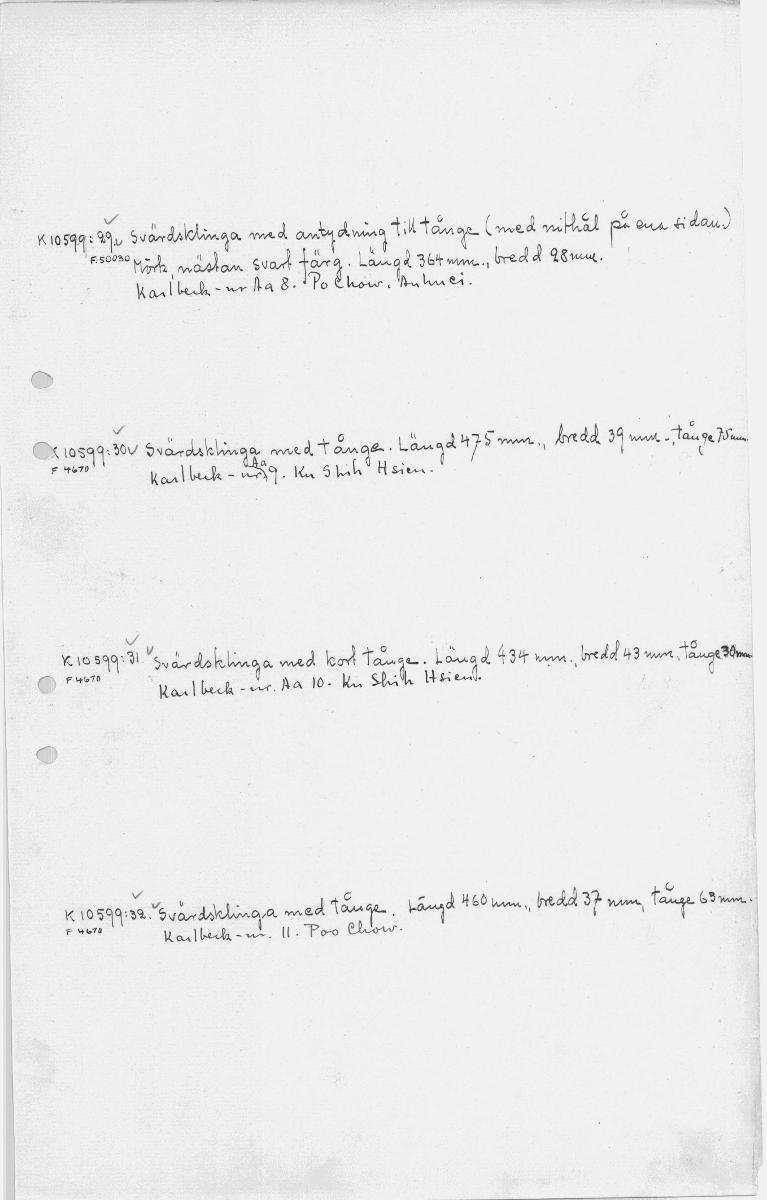 K 10599:29. Svärdsklinga med antydning till tånge (med nithål på ena sidan.)
F.50030 Mörk, nästan svart färg. Längd 364 mm., bredd 28 mm.
Karlbeck-nr Aa 8. Po Chow. Anhuei.
K 10599:30 Svärdsklinga med tånge. Längd 475 mm., bredd 39 mm., tånge 75 mm.
F 4670 Karlbeck-nr Aa 9. Ku Shih Hsien.
K 10599:31. Svärdsklinga med kort tånge. Längd 434 mm., bredd 43 mm, tånge 30 mm
F 4670 Karlbeck-nr. Aa 10. Ku Shih Hsien.
K 10599:32. Svärdsklinga med tånge. Längd 460 mm., bredd 37 mm, tånge 63 mm.
F 4670 Karlbeck-nr. 11. Poo Chow.